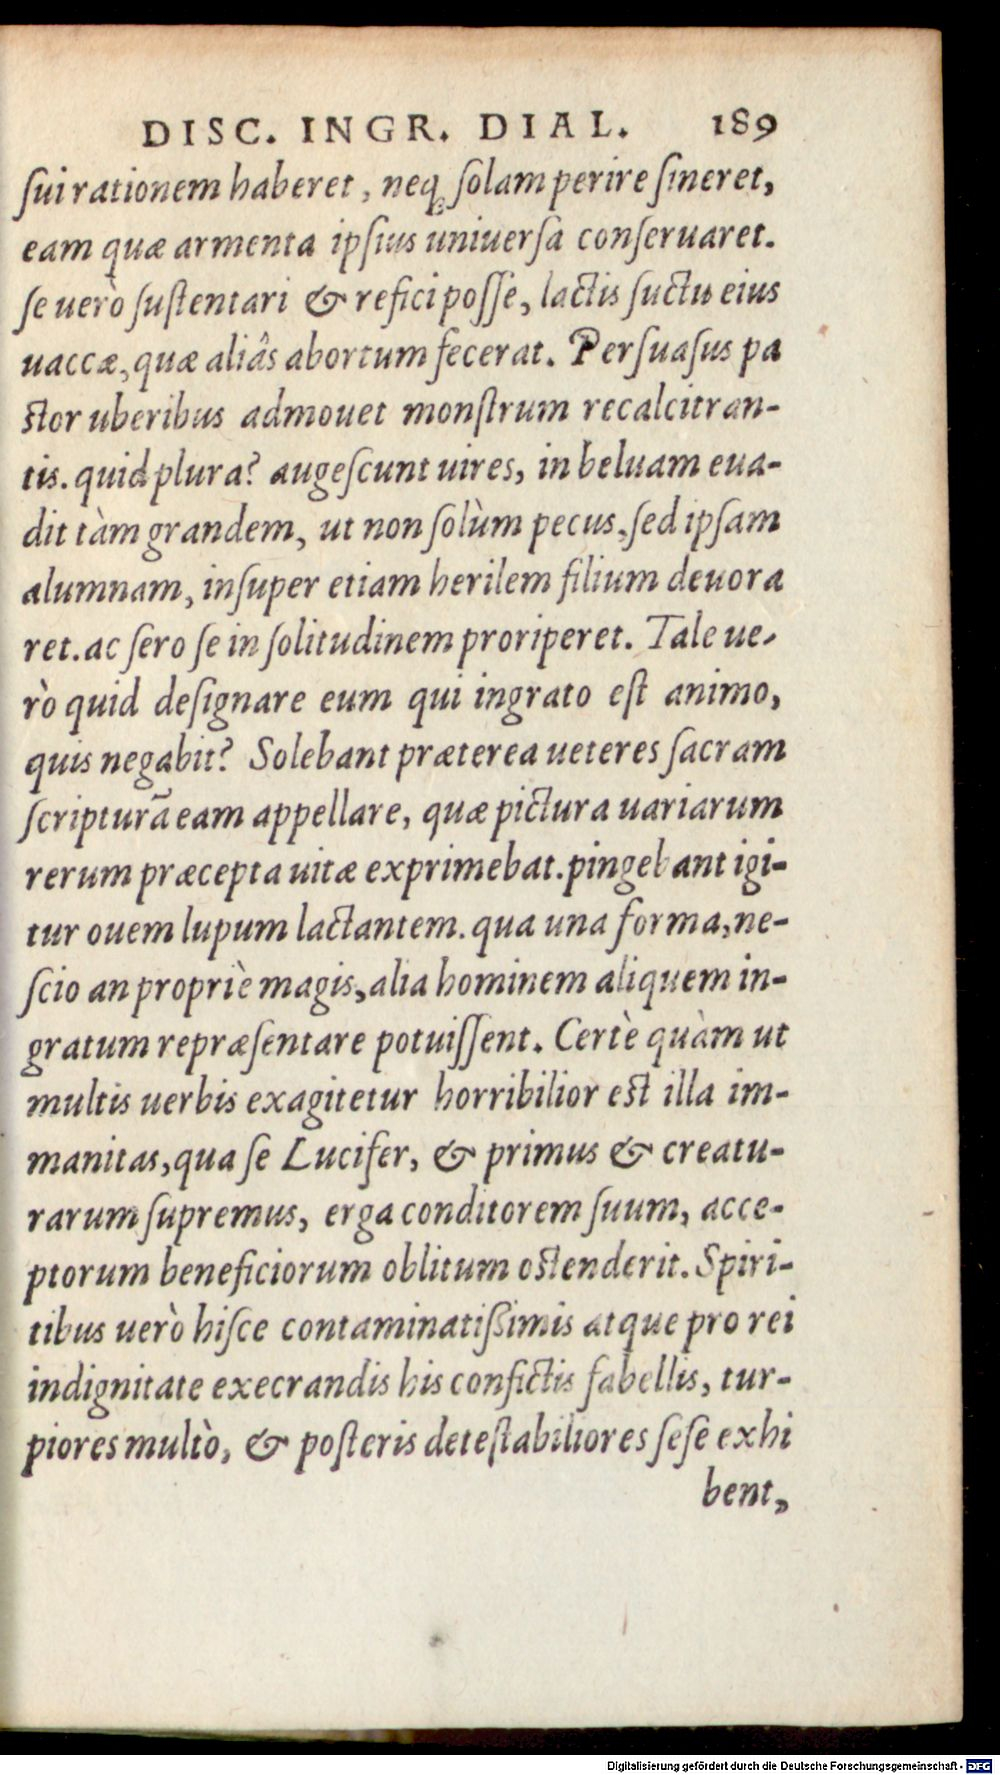 DISC. INGR. DIAL. 189
ſui rationem haberet, neq; ſolam perire ſineret,
eam quæ armenta ipſius uniuerſa conſeruaret.
ſe uerò ſuſtentari & refici poſſe, lactis ſuctu eius
uaccæ, quæ aliâs abortum fecerat. Perſuaſus pa
ſtor uberibus admouet monſtrum recalcitran-
tis. quid plura? augeſcunt uires, in beluam eua-
dit tàm grandem, ut non ſolùm pecus, ſed ipſam
alumnam, inſuper etiam herilem filium deuora
ret. ac ſero ſe in ſolitudinem proriperet. Tale ue-
rò quid deſignare eum qui ingrato eſt animo,
quis negabit? Solebant præterea ueteres ſacram
ſcripturā eam appellare, quæ pictura uariarum
rerum præcepta uitæ exprimebat. pingebant igi-
tur ouem lupum lactantem. qua una forma, ne-
ſcio an propriè magis, alia hominem aliquem in-
gratum repræſentare potuiſſent. Certè quàm ut
multis uerbis exagitetur horribilior eſt illa im-
manitas, qua ſe Lucifer, & primus & creatu-
rarum ſupremus, erga conditorem ſuum, acce-
ptorum beneficiorum oblitum oſtenderit. Spiri-
tibus uerò hiſce contaminatißimis atque pro rei
indignitate execrandis his confictis fabellis, tur-
piores multò, & poſteris deteſtabiliores ſeſe exhi
bent,
Digitalisierung gefördert durch die Deutsche Forschungsgemeinschaft - DFG